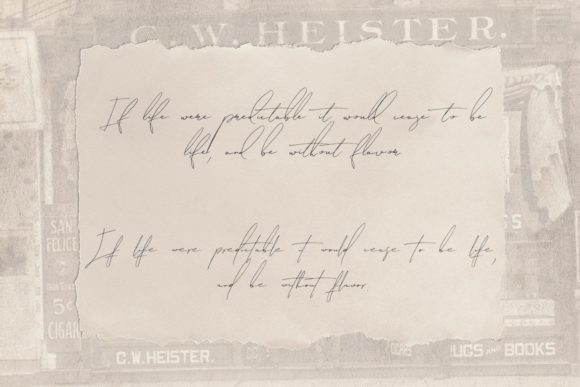 C.W. HEISTER.
If life were predictable it would cease to be
life, and be without flavor
If life were predictable it would cease to be life,
and be without flavor.
SAN
FELICE
5¢
CIGAR
C.W.HEISTER.
UGS AND BOOKS